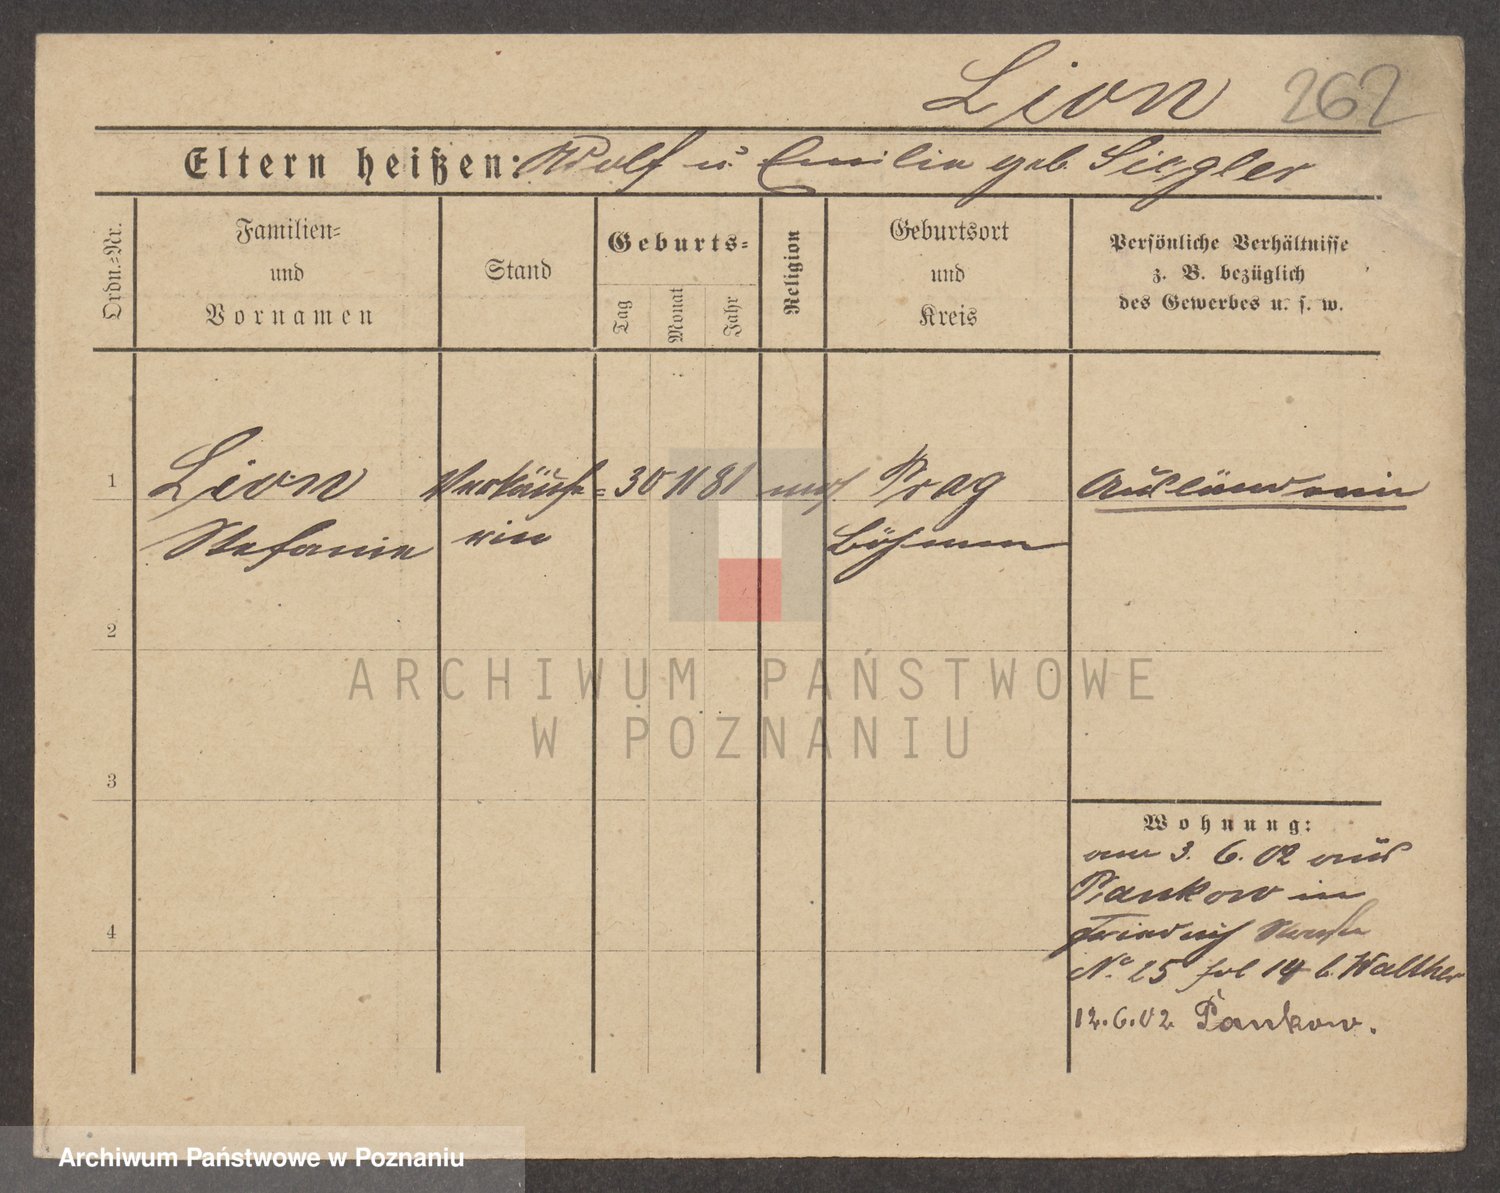 Lion 262
Eltern heißen: Adolf u. Emilie geb. Siegler
Ordn.=Nr.
Familien=
und
Vornamen
Stand
Geburts=
Tag
Monat
Jahr
Religion
Geburtsort
und
Kreis
Persönliche Verhältnisse
z. B. bezüglich
des Gewerbes u. s. w.
1 Lion Verkäufe= 30 11 81 mos Prag Ausländerin
Stefanie rin Böhmen
2
3
4
Wohnung:
am 3. 6. 02 aus
Pankow in
Friedrich Straße
No. 25 fol 14 b. Walther
12.6.02 Pankow.
ARCHIWUM PAŃSTWOWE
W POZNANIU
Archiwum Państwowe w Poznaniu